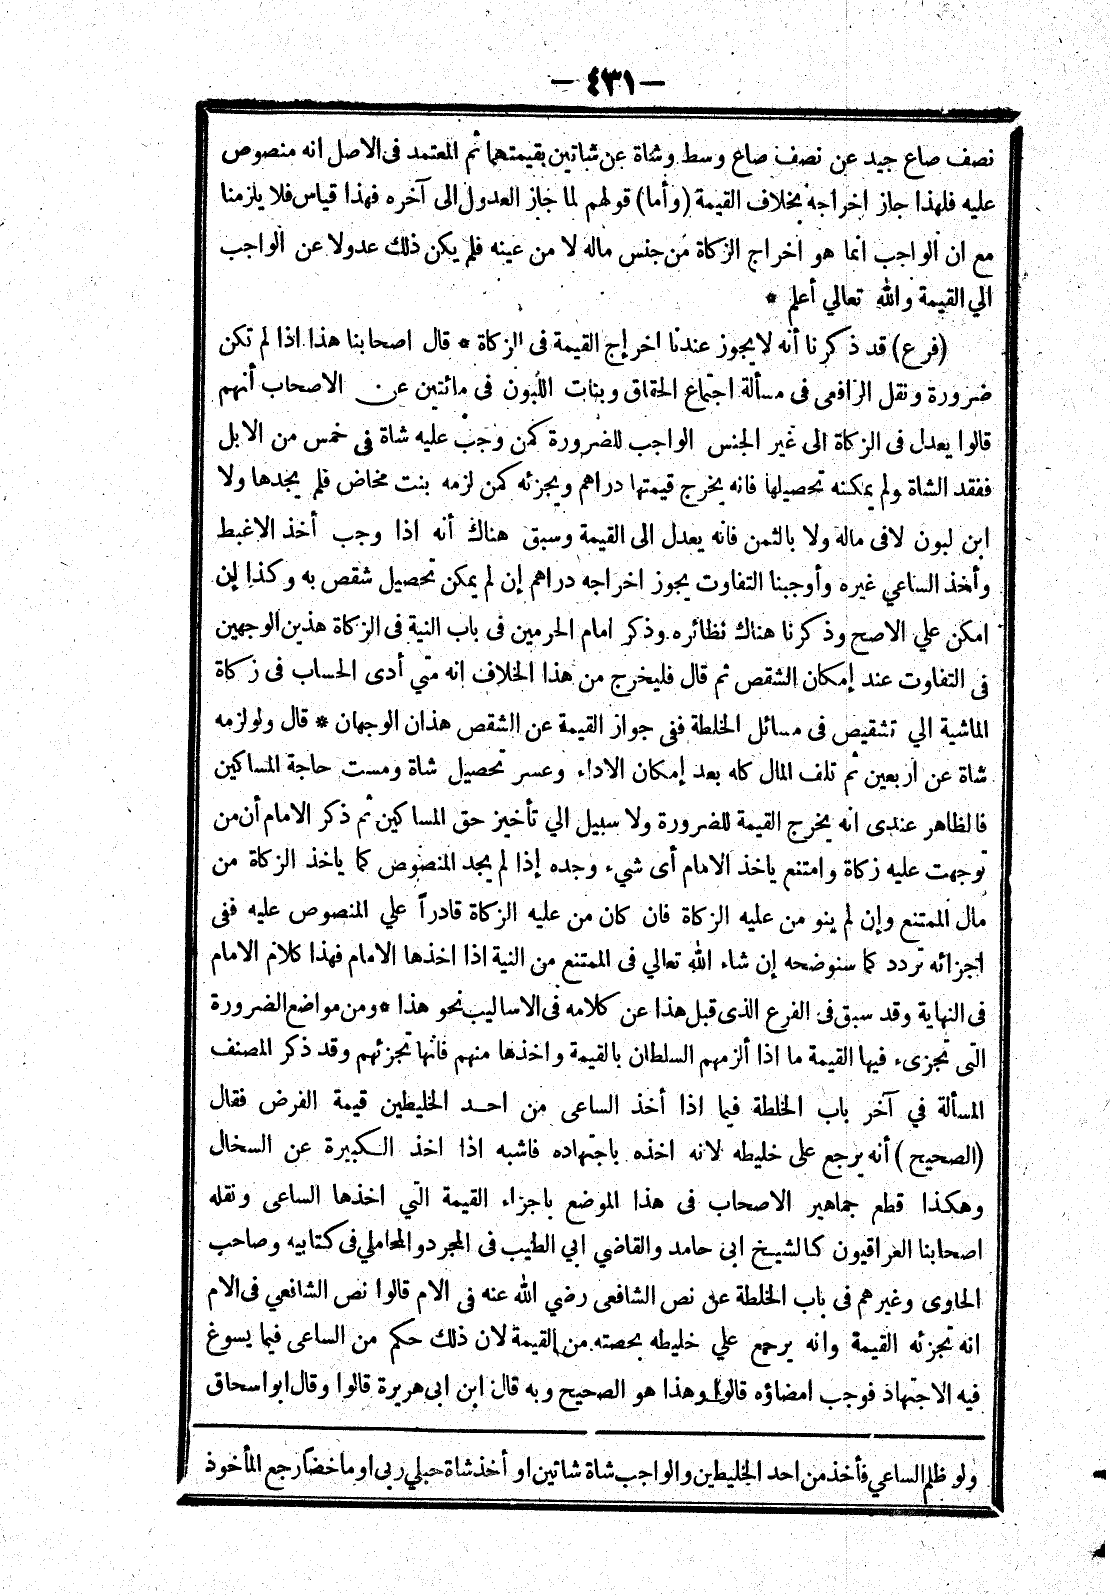 — ٤٣١ —
نصف صاع جيد عن نصف صاع وسط وشاة عن شاتين بقيمتهما ثم المعتمد فى الاصل انه منصوص
عليه فلهذا جاز اخراجه بخلاف القيمة (وأما) قولهم لما جاز العدول الى آخره فهذا قياس فلا يلزمنا
مع ان الواجب انما هو اخراج الزكاة من جنس ماله لا من عينه فلم يكن ذلك عدولا عن الواجب
الي القيمة والله تعالي أعلم *
(فرع) قد ذكرنا أنه لا يجوز عندنا اخراج القيمة فى الزكاة * قال اصحابنا هذا اذا لم تكن
ضرورة ونقل الرافعى فى مسألة اجتماع الحقاق وبنات اللبون فى مائتين عن الاصحاب أنهم
قالوا يعدل فى الزكاة الى غير الجنس الواجب للضرورة كمن وجب عليه شاة فى خمس من الابل
ففقد الشاة ولم يمكنه تحصيلها فانه يخرج قيمتها دراهم ويجزئه كمن لزمه بنت مخاض فلم يجدها ولا
ابن لبون لا فى ماله ولا بالثمن فانه يعدل الى القيمة وسبق هناك أنه اذا وجب أخذ الاغبط
وأخذ الساعي غيره وأوجبنا التفاوت يجوز اخراجه دراهم إن لم يمكن تحصيل شقص به وكذا إن
امكن علي الاصح وذكرنا هناك نظائره وذكر امام الحرمين فى باب النية فى الزكاة هذين الوجهين
فى التفاوت عند إمكان الشقص ثم قال فليخرج من هذا الخلاف انه متي أدى الحساب فى زكاة
الماشية الي تشقيص فى مسائل الخلطة ففى جواز القيمة عن الشقص هذان الوجهان * قال ولو لزمه
شاة عن اربعين ثم تلف المال كله بعد إمكان الاداء وعسر تحصيل شاة ومست حاجة المساكين
فالظاهر عندى انه يخرج القيمة للضرورة ولا سبيل الي تأخير حق المساكين ثم ذكر الامام أن من
توجهت عليه زكاة وامتنع ياخذ الامام أى شيء وجده إذا لم يجد المنصوص كما ياخذ الزكاة من
مال الممتنع وإن لم ينو من عليه الزكاة فان كان من عليه الزكاة قادراً علي المنصوص عليه ففى
اجزائه تردد كما سنوضحه إن شاء الله تعالي فى الممتنع من النية اذا اخذها الامام فهذا كلام الامام
فى النهاية وقد سبق فى الفرع الذى قبل هذا عن كلامه فى الاساليب نحو هذا * ومن مواضع الضرورة
التى تجزىء فيها القيمة ما اذا ألزمهم السلطان بالقيمة واخذها منهم فانها تجزئهم وقد ذكر المصنف
المسألة في آخر باب الخلطة فيما اذا أخذ الساعى من احد الخليطين قيمة الفرض فقال
(الصحيح) أنه يرجع على خليطه لانه اخذه باجتهاده فاشبه اذا اخذ الكبيرة عن السخال
وهكذا قطع جماهير الاصحاب فى هذا الموضع باجزاء القيمة التي اخذها الساعى ونقله
اصحابنا العراقيون كالشيخ ابى حامد والقاضي ابي الطيب فى المجرد والمحاملي فى كتابيه وصاحب
الحاوى وغيرهم فى باب الخلطة عن نص الشافعى رضي الله عنه فى الام قالوا نص الشافعي فى الام
انه تجزئه القيمة وانه يرجع علي خليطه بحصته من القيمة لان ذلك حكم من الساعى فيما يسوغ
فيه الاجتهاد فوجب امضاؤه قالوا وهذا هو الصحيح وبه قال ابن ابى هريرة قالوا وقال ابو اسحاق
ولو ظلم الساعي فأخذ من احد الخليطين والواجب شاة شاتين او أخذ شاة حبلي ربى او ماخضاً رجع المأخوذ